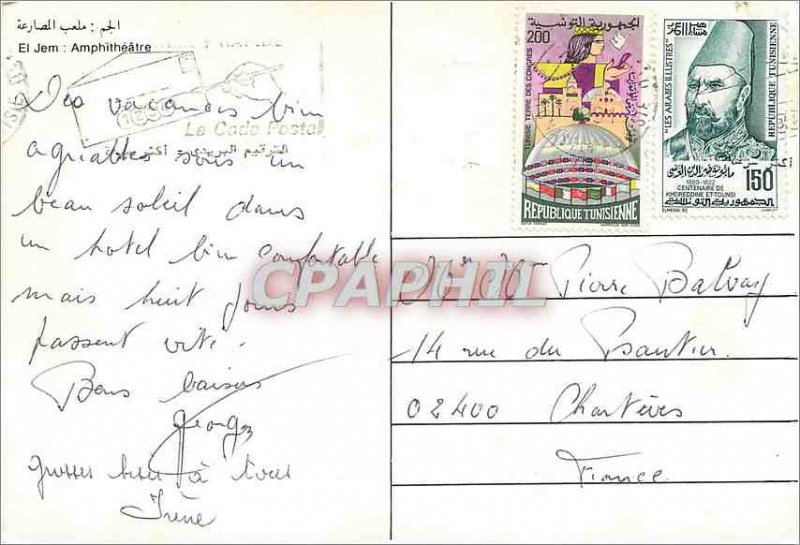 الجم : ملعب المصارعة
El Jem : Amphithéâtre
Le Code Postal
الترقيم البريدي
Des vacances bien
agréables sous un
beau soleil dans
un hotel bien confortable
mais huit jours
passent vite.
Bons baisers
Georges
grosses bises à tous
Irène
الجمهورية التونسية
200
TUNISIE TERRE DES CONGRES
REPUBLIQUE TUNISIENNE
"LES ARABES ILLUSTRES"
REPUBLIQUE TUNISIENNE
CENTENAIRE DE
KHEREDDINE ET-TOUNSI
150
الجمهورية التونسية
CPAPHIL
Pierre
14 rue du
02400 Chartèves
France